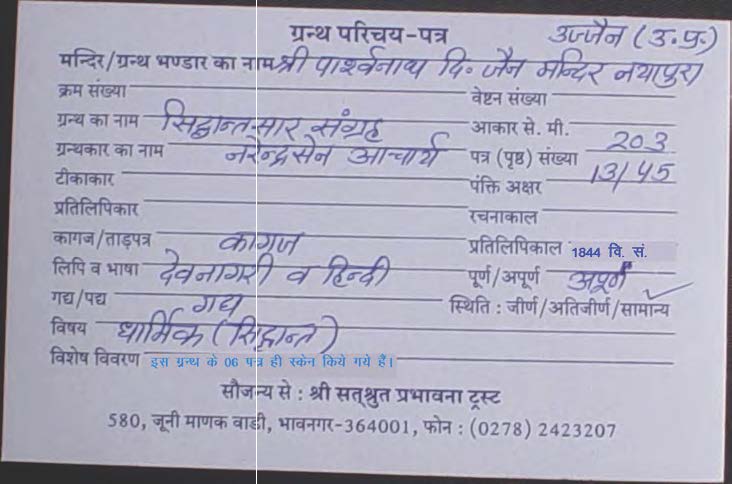 ग्रन्थ परिचय-पत्र उज्जैन (उ.प्र.)
मन्दिर/ग्रन्थ भण्डार का नाम श्री पार्श्वनाथ दि. जैन मन्दिर नयापुरा
क्रम संख्या वेष्टन संख्या
ग्रन्थ का नाम सिद्धान्तसार संग्रह आकार से. मी.
ग्रन्थकार का नाम नरेन्द्रसेन आचार्य पत्र (पृष्ठ) संख्या 203
टीकाकार पंक्ति अक्षर 13/45
प्रतिलिपिकार रचनाकाल
कागज/ताड़पत्र कागज प्रतिलिपिकाल 1844 वि. सं.
लिपि व भाषा देवनागरी व हिन्दी पूर्ण/अपूर्ण अपूर्ण
गद्य/पद्य गद्य स्थिति : जीर्ण/अतिजीर्ण/सामान्य ✓
विषय धार्मिक (सिद्धान्त)
विशेष विवरण इस ग्रन्थ के 06 पत्र ही स्केन किये गये हैं।
सौजन्य से : श्री सत्श्रुत प्रभावना ट्रस्ट
580, जूनी माणक वाडी, भावनगर-364001, फोन : (0278) 2423207